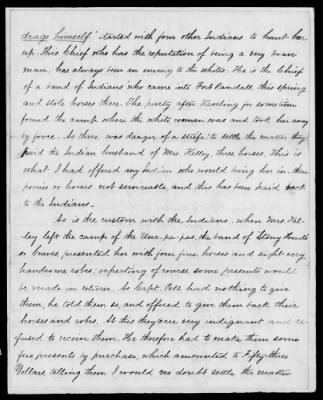 drags himself" started with four other Indians to hunt her
up. This Chief who has the reputation of being a very brave
man, has always been an enemy to the whites. He is the Chief
of a band of Indians who came into Fort Randall this spring
and stole horses there. The party after traveling for sometime
found the camp where the white woman was and took her away
by force. As there was danger of a strife to settle the matter they
paid the Indian husband of Mrs. Kelley, three horses. This is
what I had offered any Indian who would bring her in - three
ponies or horses not serviceable, and this has been paid back
to the Indians.
As is the custom with the Indians, when Mrs. Kel-
ley left the camp of the Unc-pa-pas, the band of Strong Hearts
or braves, presented her with four fine horses and eight very
handsome robes, expecting of course some presents would
be made in return. As Capt. Pell had nothing to give
them, he told them so, and offered to give them back their
horses and robes. At this they were very indignant and re-
fused to receive them. He therefore had to make them some
few presents by purchase, which amounted to Fifty-three
Dollars, telling them I would no doubt settle the matter